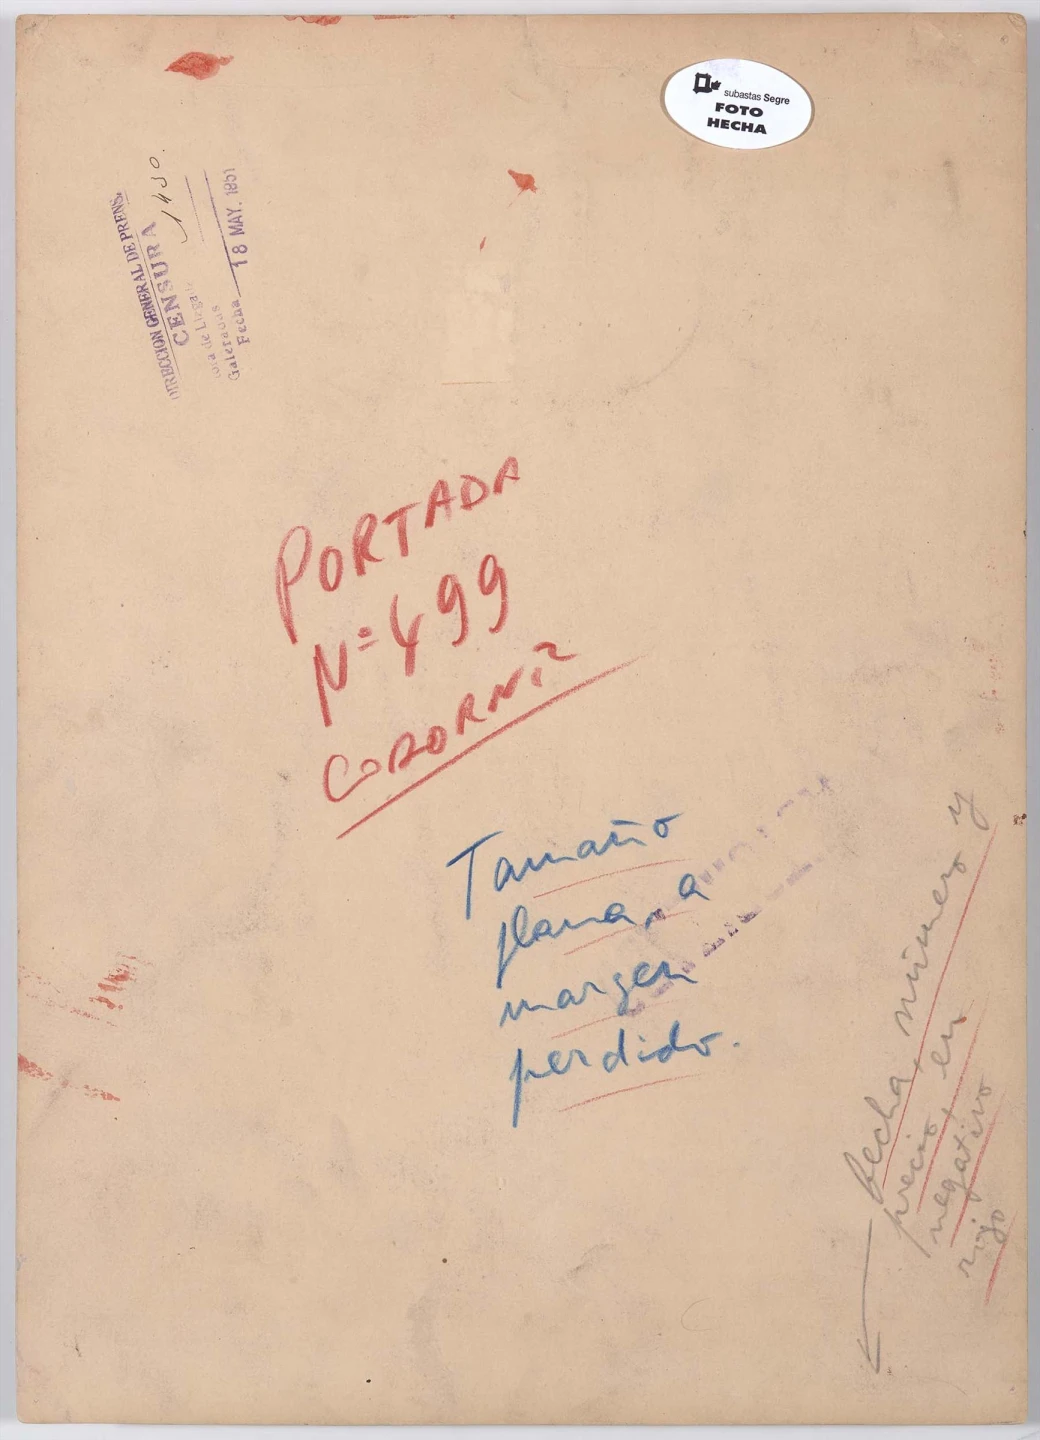 subastas Segre
FOTO
HECHA
DIRECCION GENERAL DE PRENS.
CENSURA
1430.
Galeradas
Fecha 18 MAY. 1951
PORTADA
Nº 499
CODORNIZ
Tamaño
plana, a
margen
perdido.
fecha, número y
precio, en
negativo
rojo